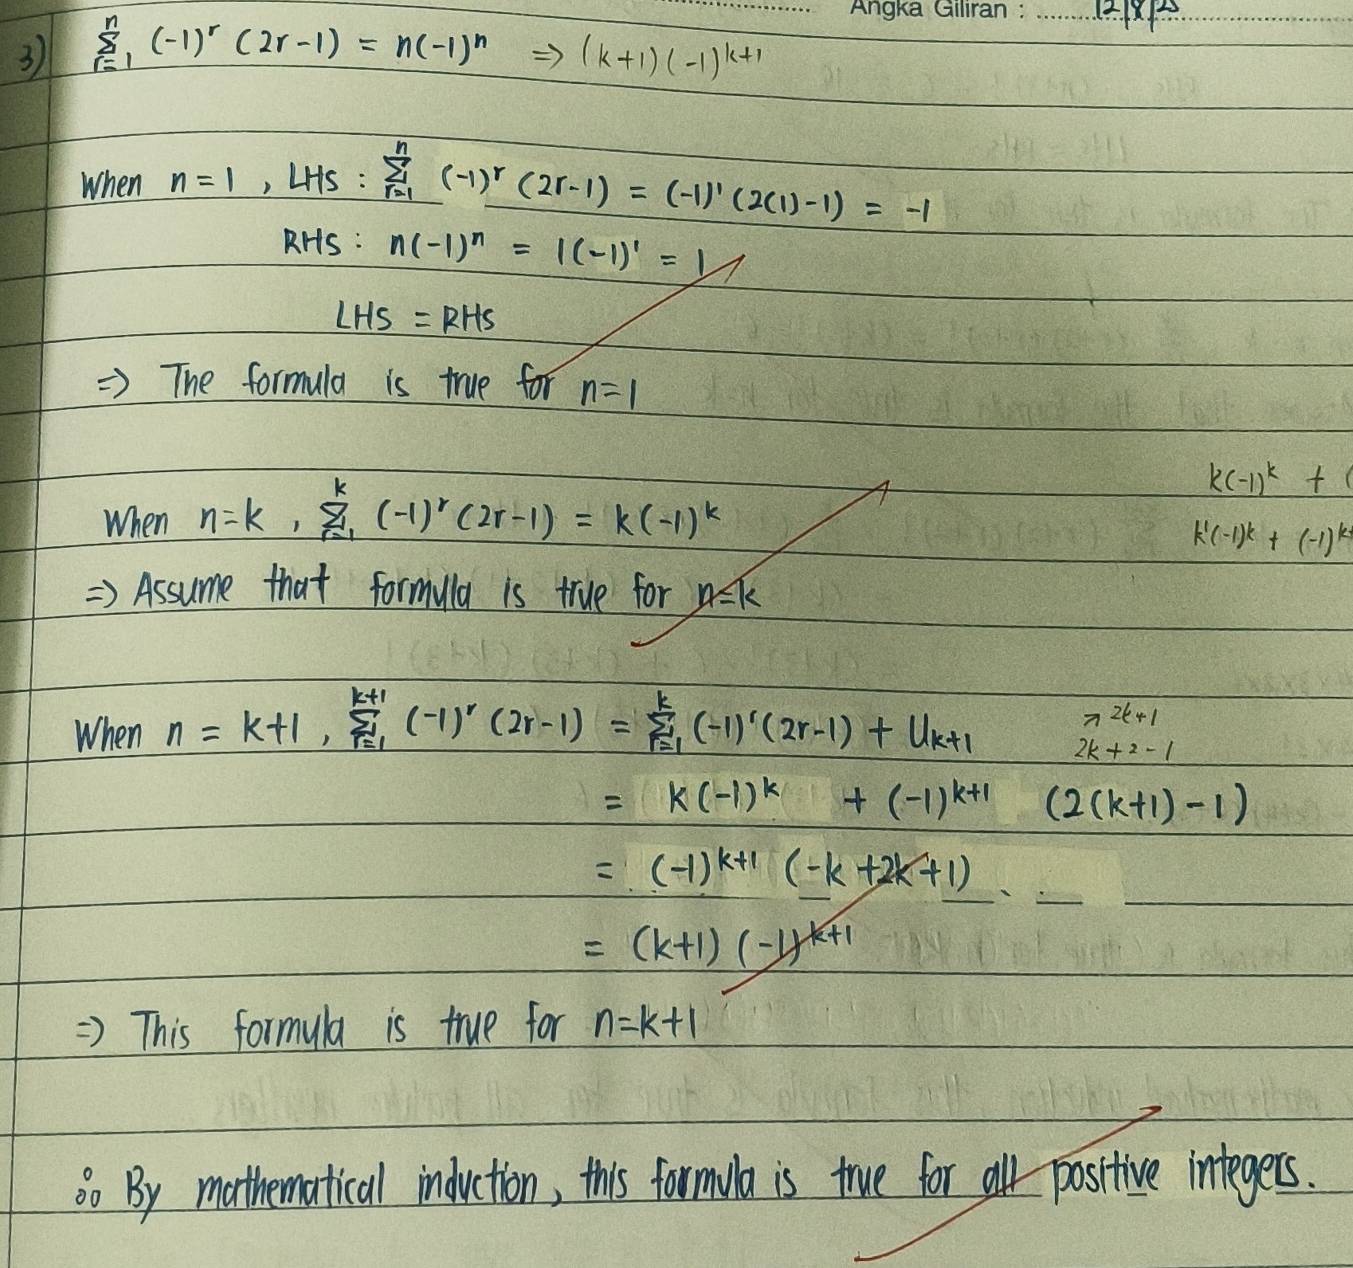 Angka Giliran : 12/8/25
3) n Σ r=1 (-1)^r (2r-1) = n(-1)^n ⇒ (k+1)(-1)^k+1
When n=1 , LHS : n Σ r=1 (-1)^r (2r-1) = (-1)^1 (2(1)-1) = -1
RHS : n(-1)^n = 1(-1)^1 = 1
LHS = RHS
⇒ The formula is true for n=1
k(-1)^k + (
When n=k , k Σ r=1 (-1)^r (2r-1) = k(-1)^k
k(-1)^k + (-1)^k
⇒ Assume that formula is true for n=k
When n = k+1 , k+1 Σ r=1 (-1)^r (2r-1) = k Σ r=1 (-1)^r (2r-1) + U_k+1
↗ 2k+1
2k+2-1
= k(-1)^k + (-1)^k+1 (2(k+1)-1)
= (-1)^k+1 (-k+2k+1)
= (k+1) (-1)^k+1
⇒ This formula is true for n=k+1
∴ By mathematical induction, this formula is true for all positive integers.